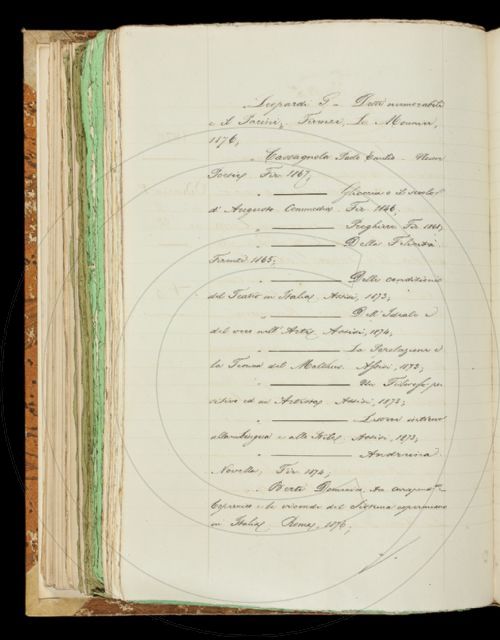 Leopardi G - Detti memorabili
e il Parini, Firenze, Le Monnier,
1876;
" Castagnola Paolo Emilio - Nuove
Poesie, Fir. 1867;
" ——— Glicera o il secolo
d'Augusto Commedia, Fir. 1846;
" ——— Preghiere Fir. 1868;
" ——— Della Felicità.
Firenze 1865;
" ——— Delle condizioni
del Teatro in Italia, Assisi, 1873;
" ——— Dell'Ideale e
del vero nell'Arte, Assisi, 1874;
" ——— La Popolazione e
la Teorica del Malthus. Assisi, 1873;
" ——— Un Filosofo po-
sitivo ed un Artista, Assisi, 1873;
" ——— Lettera intorno
alla lingua e allo Stile, Assisi, 1873;
" ——— Andreina.
Novella, Fir. 1874;
" Berti Domenico,
Copernico e le vicende del Sistema copernicano
in Italia, Roma, 1876;